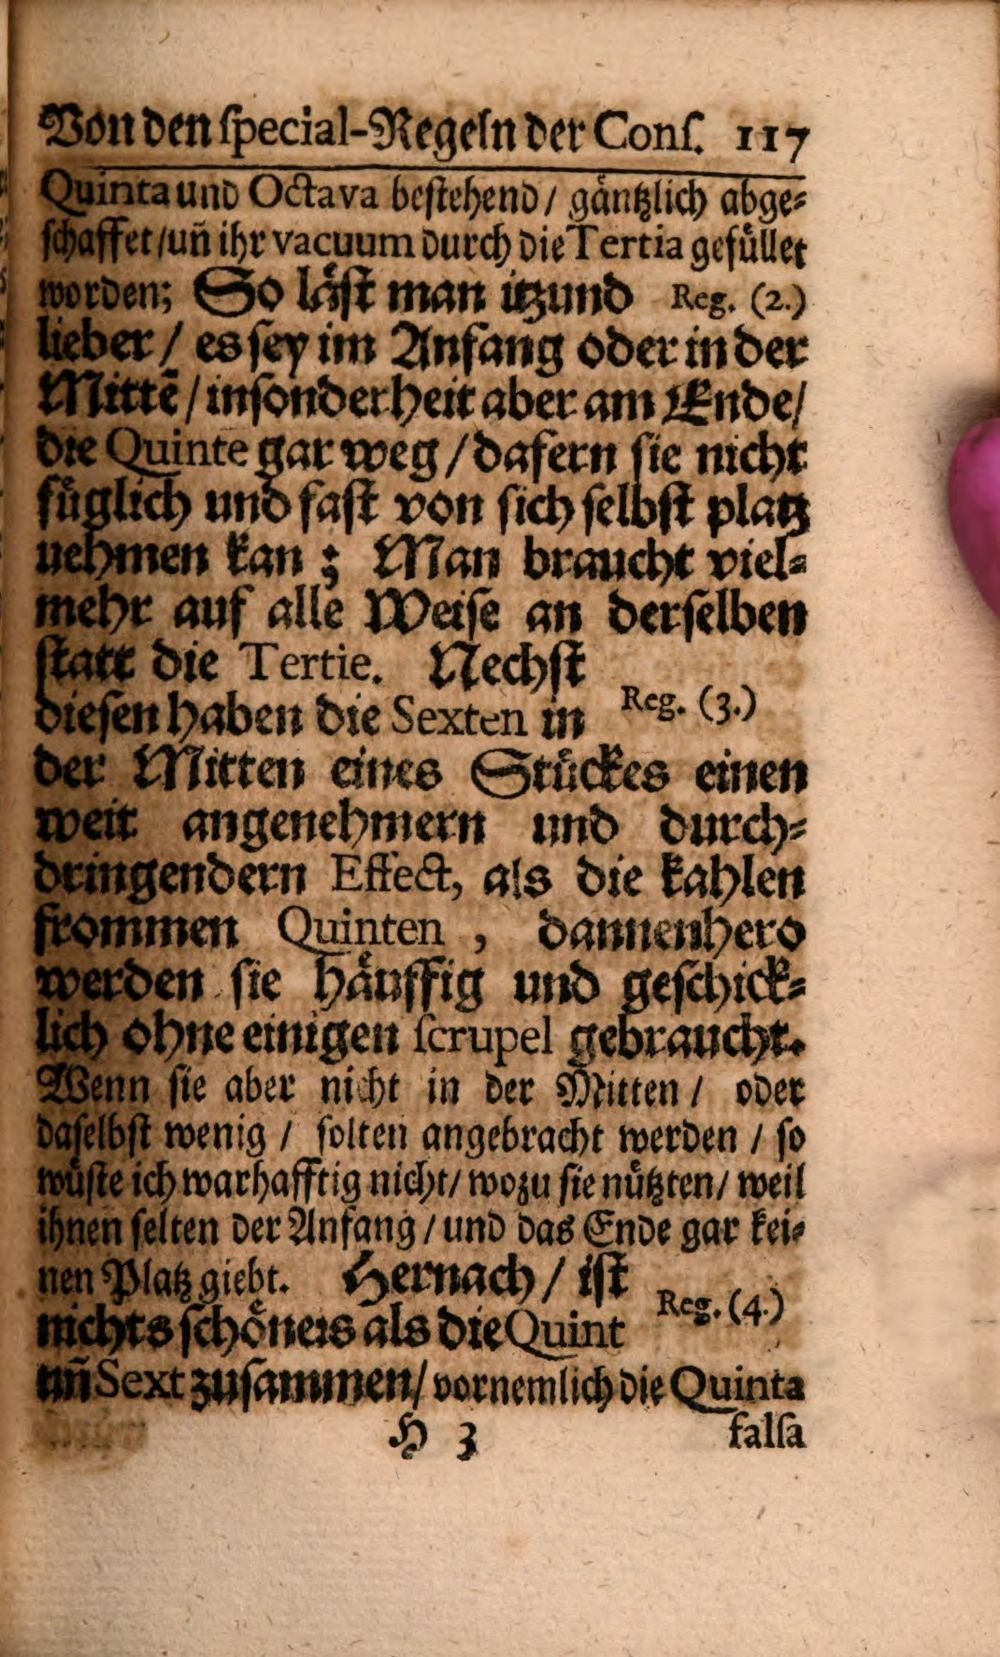 Von den ſpecial-Regeln der Conſ. 117
Quinta und Octava beſtehend / gaͤntzlich abge⸗
ſchaffet / uñ ihr vacuum durch die Tertia gefuͤllet
worden; So laͤſt man itzund Reg. (2.)
lieber / es ſey im Anfang oder in der
Mittē / inſonderheit aber am Ende /
die Quinte gar weg / dafern ſie nicht
fuͤglich und faſt von ſich ſelbſt platz
nehmen kan ; Man braucht viel⸗
mehr auf alle Weiſe an derſelben
ſtatt die Tertie. Nechſt
dieſen haben die Sexten in Reg. (3.)
der Mitten eines Stuͤckes einen
weit angenehmern und durch⸗
dringendern Effect, als die kahlen
frommen Quinten , dannenhero
werden ſie haͤuffig und geſchick⸗
lich ohne einigen ſcrupel gebraucht.
Wenn ſie aber nicht in der Mitten / oder
daſelbſt wenig / ſolten angebracht werden / ſo
wuͤſte ich warhafftig nicht / wozu ſie nuͤtzten / weil
ihnen ſelten der Anfang / und das Ende gar kei⸗
nen Platz giebt. Hernach / iſt
nichts ſchoͤners als die Quint Reg. (4.)
uñ Sext zuſammen / vornemlich die Quinta
H 3 falſa